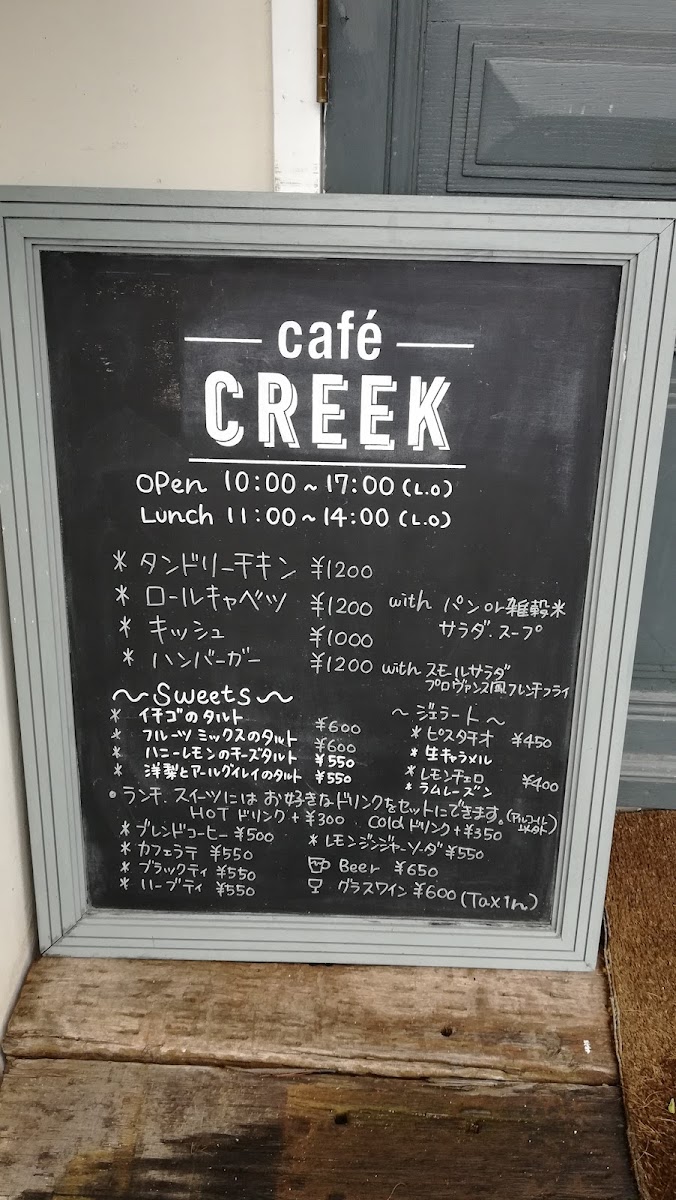 café
CREEK
OPen 10:00~17:00(L.O)
Lunch 11:00~14:00(L.O)
* タンドリーチキン ¥1200
* ロールキャベツ ¥1200 with パン or 雑穀米
サラダ.スープ
* キッシュ ¥1000
* ハンバーガー ¥1200 with スモールサラダ
プロヴァンス風フレンチフライ
~Sweets~
* イチゴのタルト ¥600
* フルーツミックスのタルト ¥600
* ハニーレモンのチーズタルト ¥550
* 洋梨とアールグレイのタルト ¥550
~ジェラート~
* ピスタチオ ¥450
* 生キャラメル
* レモンチェロ ¥400
* ラムレーズン
• ランチ.スイーツにはお好きなドリンクをセットにできます。(アルコール以外)
HOTドリンク+¥300 . Coldドリンク+¥350
* ブレンドコーヒー ¥500
* カフェラテ ¥550
* ブラックティ ¥550
* ハーブティ ¥550
* レモンジンジャーソーダ ¥550
Beer ¥650
グラスワイン ¥600 (Tax in)